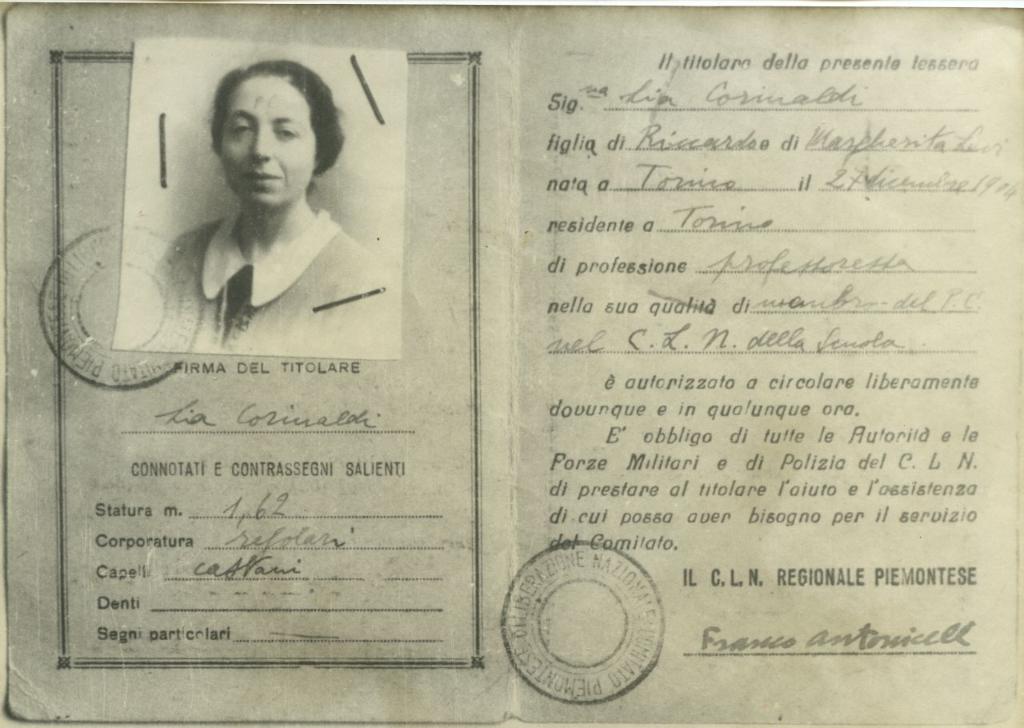 FIRMA DEL TITOLARE
Lia Corinaldi
CONNOTATI E CONTRASSEGNI SALIENTI
Statura m. 1,62
Corporatura regolari
Capelli castani
Denti
Segni particolari
Il titolare della presente tessera
Sig.na Lia Corinaldi
figlia di Riccardo e di Margherita Levi
nata a Torino il 27 dicembre 1904
residente a Torino
di professione professoressa
nella sua qualità di membro del P.C.
nel C.L.N. della Scuola
è autorizzato a circolare liberamente
dovunque e in qualunque ora.
E' obbligo di tutte le Autorità e le
Forze Militari e di Polizia del C. L. N.
di prestare al titolare l'aiuto e l'assistenza
di cui possa aver bisogno per il servizio
del Comitato.
IL C. L. N. REGIONALE PIEMONTESE
Franco Antonicelli
COMITATO PIEMONTESE DI LIBERAZIONE NAZIONALE